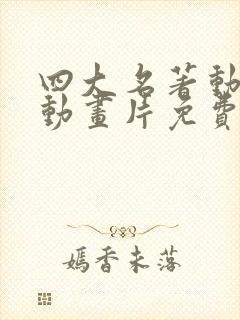 四大名著動
動畫片免費
嫣香未落